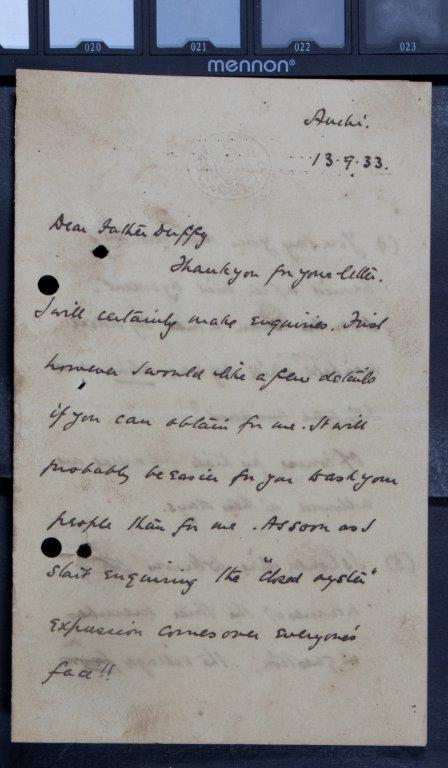 020
021
022
023
mennon®
Auchi.
13.9.33.
Dear Father Duffy
Thank you for your letter.
I will certainly make enquiries. First
however I would like a few details
if you can obtain for me. It will
probably be easier for you to ask your
people than for me. As soon as I
start enquiring the "closed oyster"
expression comes over everyone's
face!!